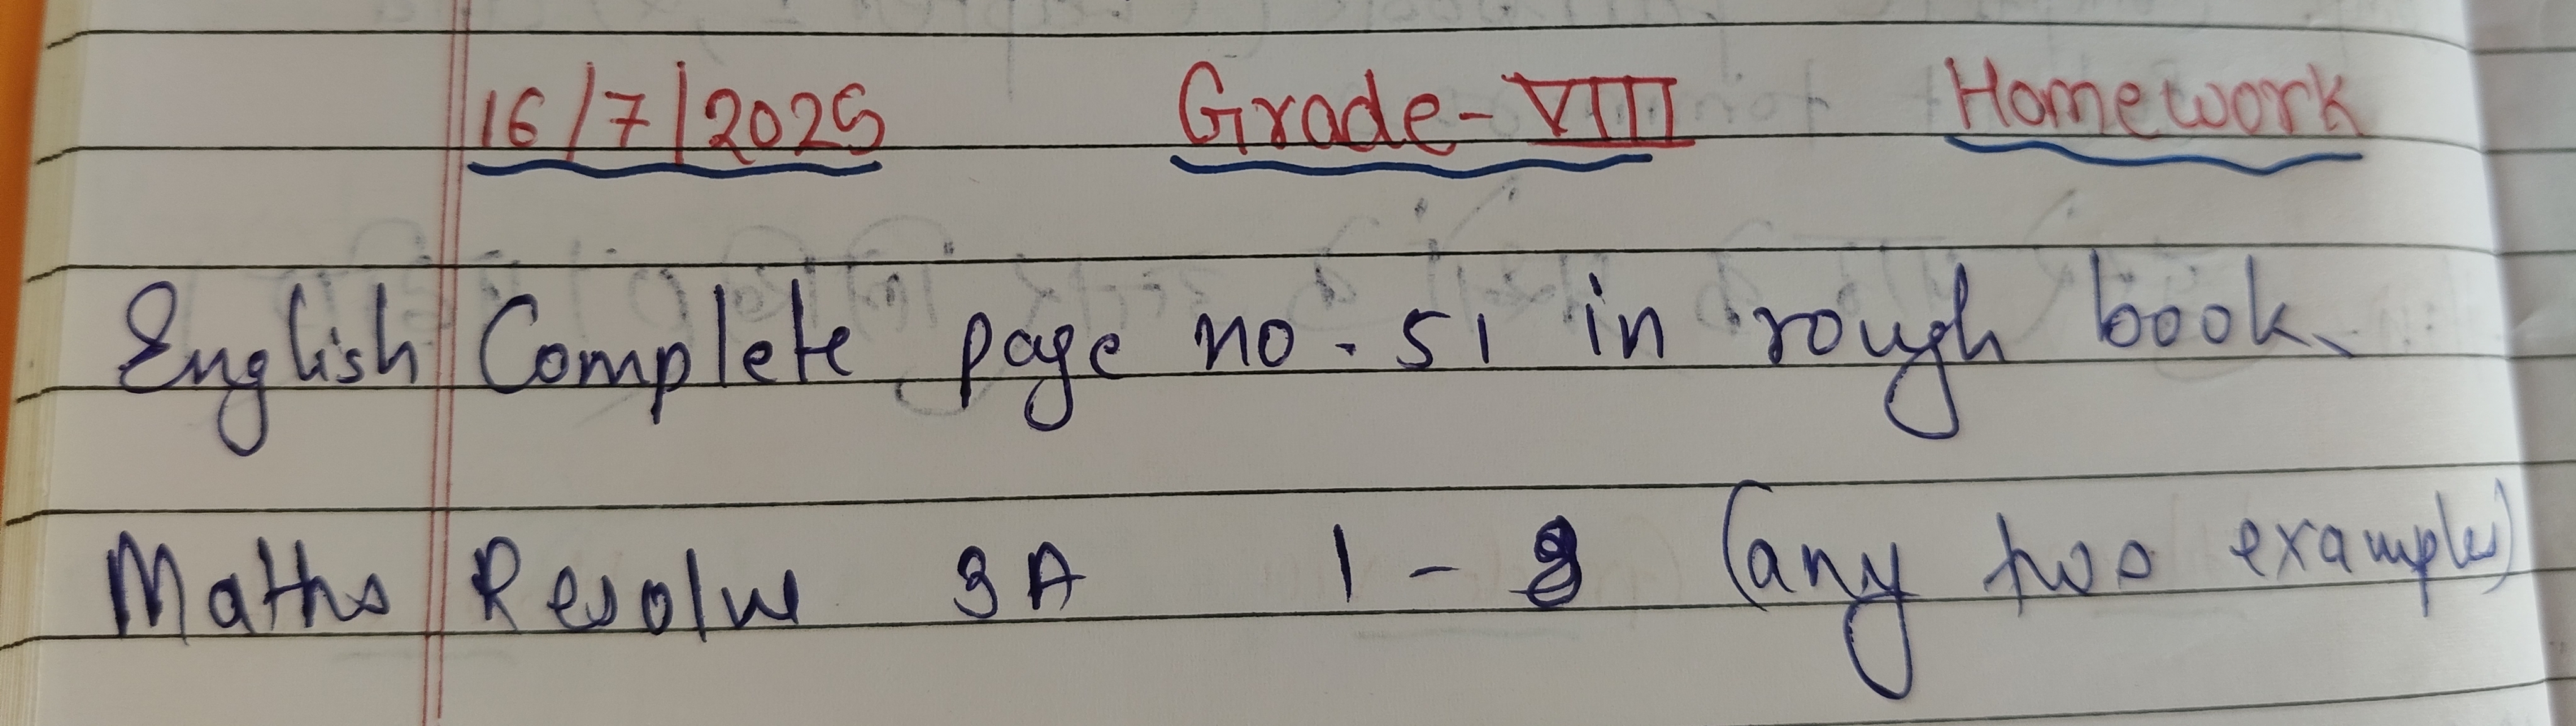 16/7/2025 Grade-VIII Homework
English Complete page no. 51 in rough book.
Maths Resolve 3A 1 - 8 (any two examples)